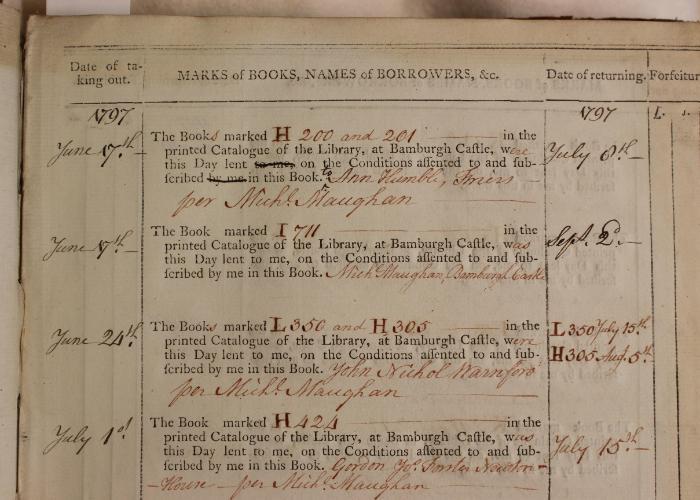 Date of ta-
king out.
MARKS of BOOKS, NAMES of BORROWERS, &c.
Date of returning.
Forfeitur
1797
1797
L. s.
June 17.th
The Books marked H 200 and 201 in the
printed Catalogue of the Library, at Bamburgh Caſtle, were
this Day lent to me, on the Conditions aſſented to and ſub-
ſcribed by me in this Book. to Ann Humble, Friers
per Mich.l Maughan
July 8th
June 17th
The Book marked I 711 in the
printed Catalogue of the Library, at Bamburgh Caſtle, was
this Day lent to me, on the Conditions aſſented to and ſub-
ſcribed by me in this Book. Mich.l Maughan, Bamburgh Castle
Sept. 2d.
June 24th
The Books marked L 350 and H 305 in the
printed Catalogue of the Library, at Bamburgh Caſtle, were
this Day lent to me, on the Conditions aſſented to and ſub-
ſcribed by me in this Book. John Nichol Warnford
per Mich.l Maughan
L 350 July 15th
H 305 Aug. 5th
July 1st
The Book marked H 424 in the
printed Catalogue of the Library, at Bamburgh Caſtle, was
this Day lent to me, on the Conditions aſſented to and ſub-
ſcribed by me in this Book. Gordon Jos. Forster
House per Mich.l Maughan
July 15th